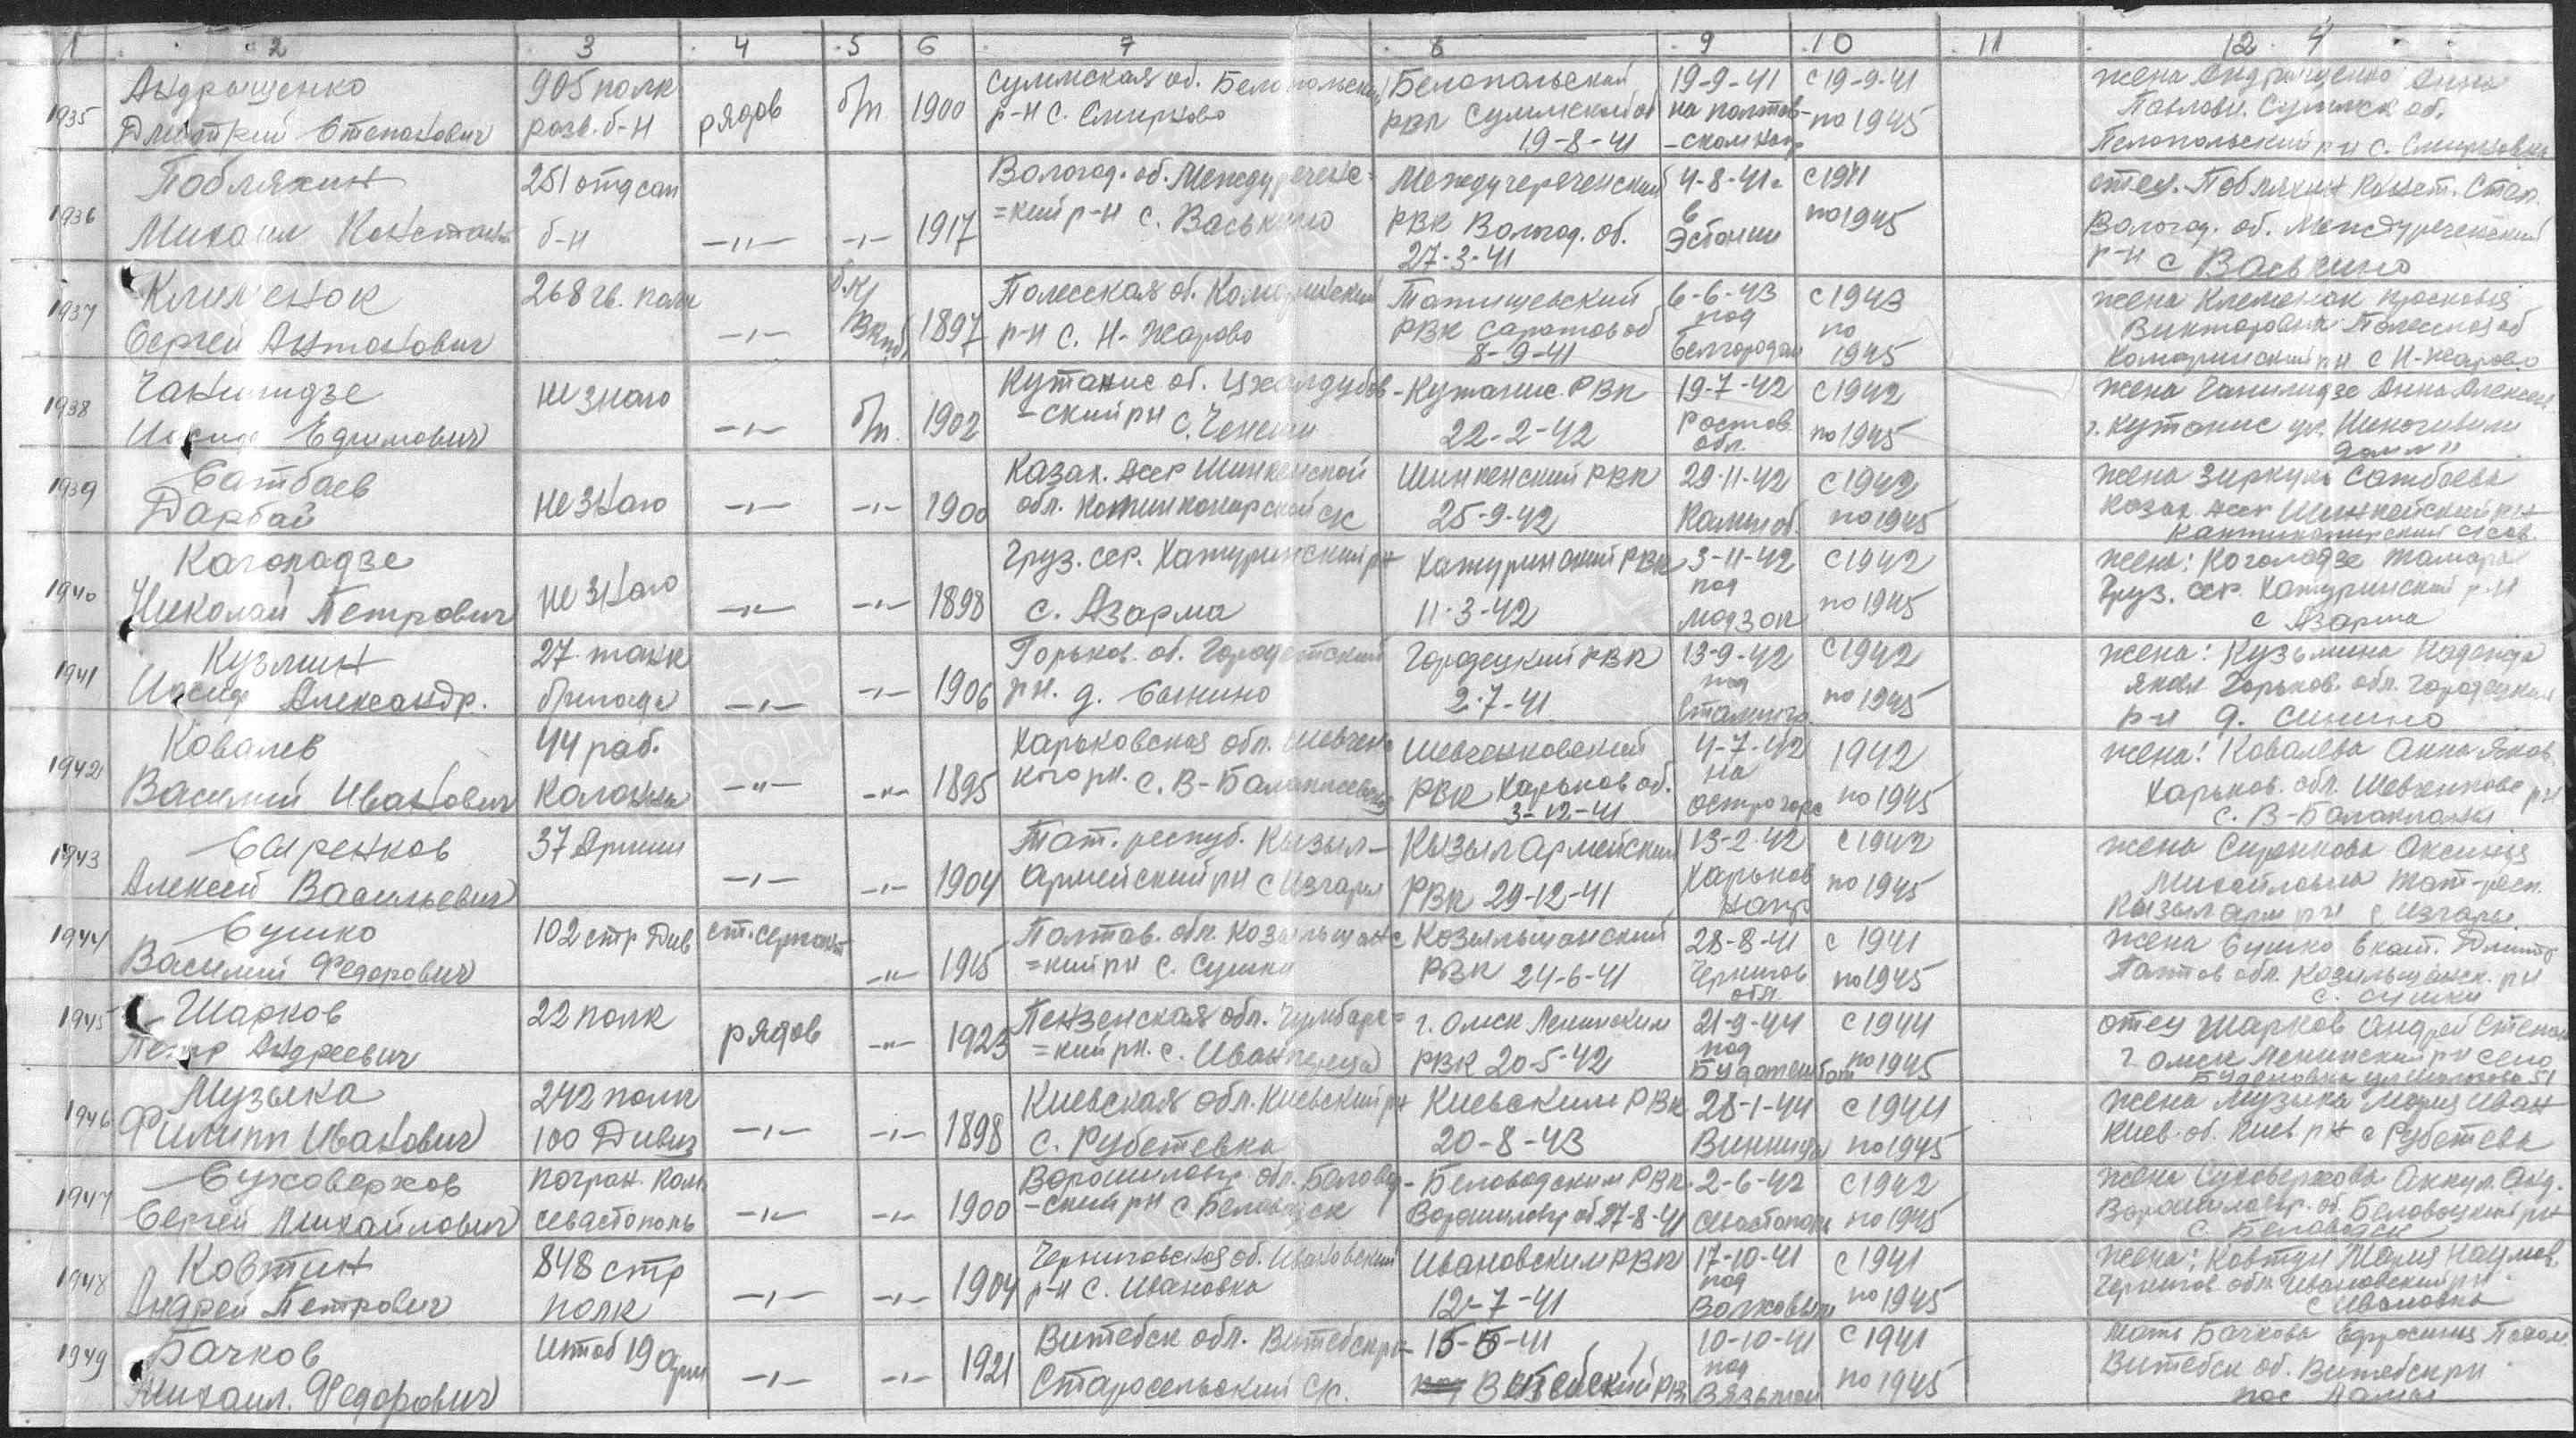 1 2 3 4 5 6 7 8 9 10 11 12
1935 Андрющенко Дмитрий Степанович
905 полк разв. б-н
рядов
б/п
1900
Суммская об. Белопольский
р-н с. Смирново
Белопольский
РВК Суммской об
19-8-41
19-9-41
на полтав-
-ском напр
с 19-9-41
по 1945
жена Андрющенко Анна
Павловн. Суммск об.
Пелопольский рн с. Смирновка
1936 Побляхин
Михаил Констант
251 отд сап
б-н
-"-
-"-
1917
Вологод. об. Междуречене-
=кий р-н с. Васькино
Междугереченский
РВК Вологод. об.
27-3-41
4-8-41г
в
Эстонии
с 1941
по 1945
отец. Побляхин Конст. Степ.
Вологод. об. Междуреченский
р-н с Васькино
1937 Клименок
Сергей Антонович
268 гв. полк
-"-
б.к/
ВКПб
1897
Полесская об. Комаринский
р-н с. Н-Жарово
Татищевский
РВК Саратов об
8-9-41
6-6-43
под
Белгородом
с 1943
по
1945
жена Клеменок Просковья
Викторовна Полесская об
Комаринский рн с Н-Жарово
1938 Чанишидзе
Иосиф Ефимович
не знаю
-"-
б/п.
1902
Кутаис об. Цхалдубов-
-ский рн с.
Кутаис. РВК
22-2-42
19-7-42
Ростов.
обл.
с 1942
по 1945
жена Анна
г. Кутаис ул.
дом
1939 Сатбаев
Дарбай
не знаю
-"-
-"-
1900
Казах. асср
обл.
РВК
25-9-42
29-11-42
Калин об.
с 1942
по 1945
жена Зиркуль Сатбаева
Казах. асср
1940 Коголадзе
Николай Петрович
не знаю
-"-
-"-
1898
Груз. сср. Хатуринский рн
с. Азарма
Хатуринский РВК
11-3-42
3-11-42
под
мадзок
с 1942
по 1945
жена: Коголадзе Тамара
Груз. сср. Хатуринский р-н
с Азарма
1941 Кузмин
Иосиф Александр.
27 танк
бригада
-"-
-"-
1906
Горьков. об. Городетский
рн. д. Сынино
Городецкий РВК
2-7-41
13-9-42
под
Сталингр.
с 1942
по 1945
жена: Кузьмина Надежда
Яковл Горьков. обл. Городецкий
р-н д. Синино
1942 Ковалев
Василий Иванович
44 раб.
Колонна
-"-
-"-
1895
Харьковская обл. Шевченс
кого рн. с. В-
Шевченковский
РВК Харьков об.
3-12-41
4-7-42
на
острогорс
1942
по 1945
жена: Ковалева Анна Яков.
Харьков. обл. Шевченково рн
с. В-
1943 Сыренков
Алексей Васильевич
37 Армии
-"-
-"-
1904
Тат. респуб. Кызыл-
армейский рн с Изгары
КызылАрмейский
РВК 29-12-41
13-2-42
Харьков
напр
с 1942
по 1945
жена Сиренкова Аксинья
Михайловна Тат-респ.
Кызыл арм рн с Изгары.
1944 Сушко
Василий Федорович
102 стр Див
ст. сержант
-"-
1915
Полтав. обл. Козыльщанс
=кий рн с. Сушки
Козыльщанский
РВК 24-6-41
28-8-41
Чернигов
обл.
с 1941
по 1945
жена Сушко Екат. Дмитр
Полтав обл. Козыльщанск. рн
с. Сушки
1945 Шарков
Петр Андреевич
22 полк
рядов
-"-
1923
Пензенская обл. Чумбарс=
=кий рн. с.
г. Омск Ленинским
РВК 20-5-42
21-9-44
под
Будапештом
с 1944
по 1945
отец Шарков Андрей Степан
г Омск Ленинский рн село
Буденовка ул 51
1946 Музыка
Филипп Иванович
242 полк
100 Дивиз
-"-
-"-
1898
Киевская обл. Киевский рн
с. Рубетевка
Киевским РВК
20-8-43
28-1-44
Винница
с 1944
по 1945
жена Музыка Мария Иван
Киев. об. Киев рн с Рубетевк
1947 Суховерхов
Сергей Михайлович
погран. Ком.
Севастополь
-"-
-"-
1900
Ворошиловгр. обл. Беловод-
-ский рн с Беловодск
Беловодским РВК
Ворошиловгр об 27-8-41
2-6-42
Севастополь
с 1942
по 1945
жена Суховерхова Акул. Анд.
Ворошиловгр. об. Беловодский рн
с. Беловодск
1948 Ковтун
Андрей Петрович
848 стр
полк
-"-
-"-
1904
Черниговская об. Ивановский
р-н с. Ивановка
Ивановским РВК
12-7-41
17-10-41
под
с 1941
по 1945
жена: Ковтун Мария Наумов.
Чернигов обл. Ивановский рн.
с Ивановка
1949 Бачков
Михаил Федорович
Штаб 19 Арм
-"-
-"-
1921
Витебск обл. Витебск рн
Старосельский с/с.
15-5-41
Витебский РВ
10-10-41
под
Вязьмой
с 1941
по 1945
Мать Бачкова Ефросинья
Витебск об. Витебск рн
пос